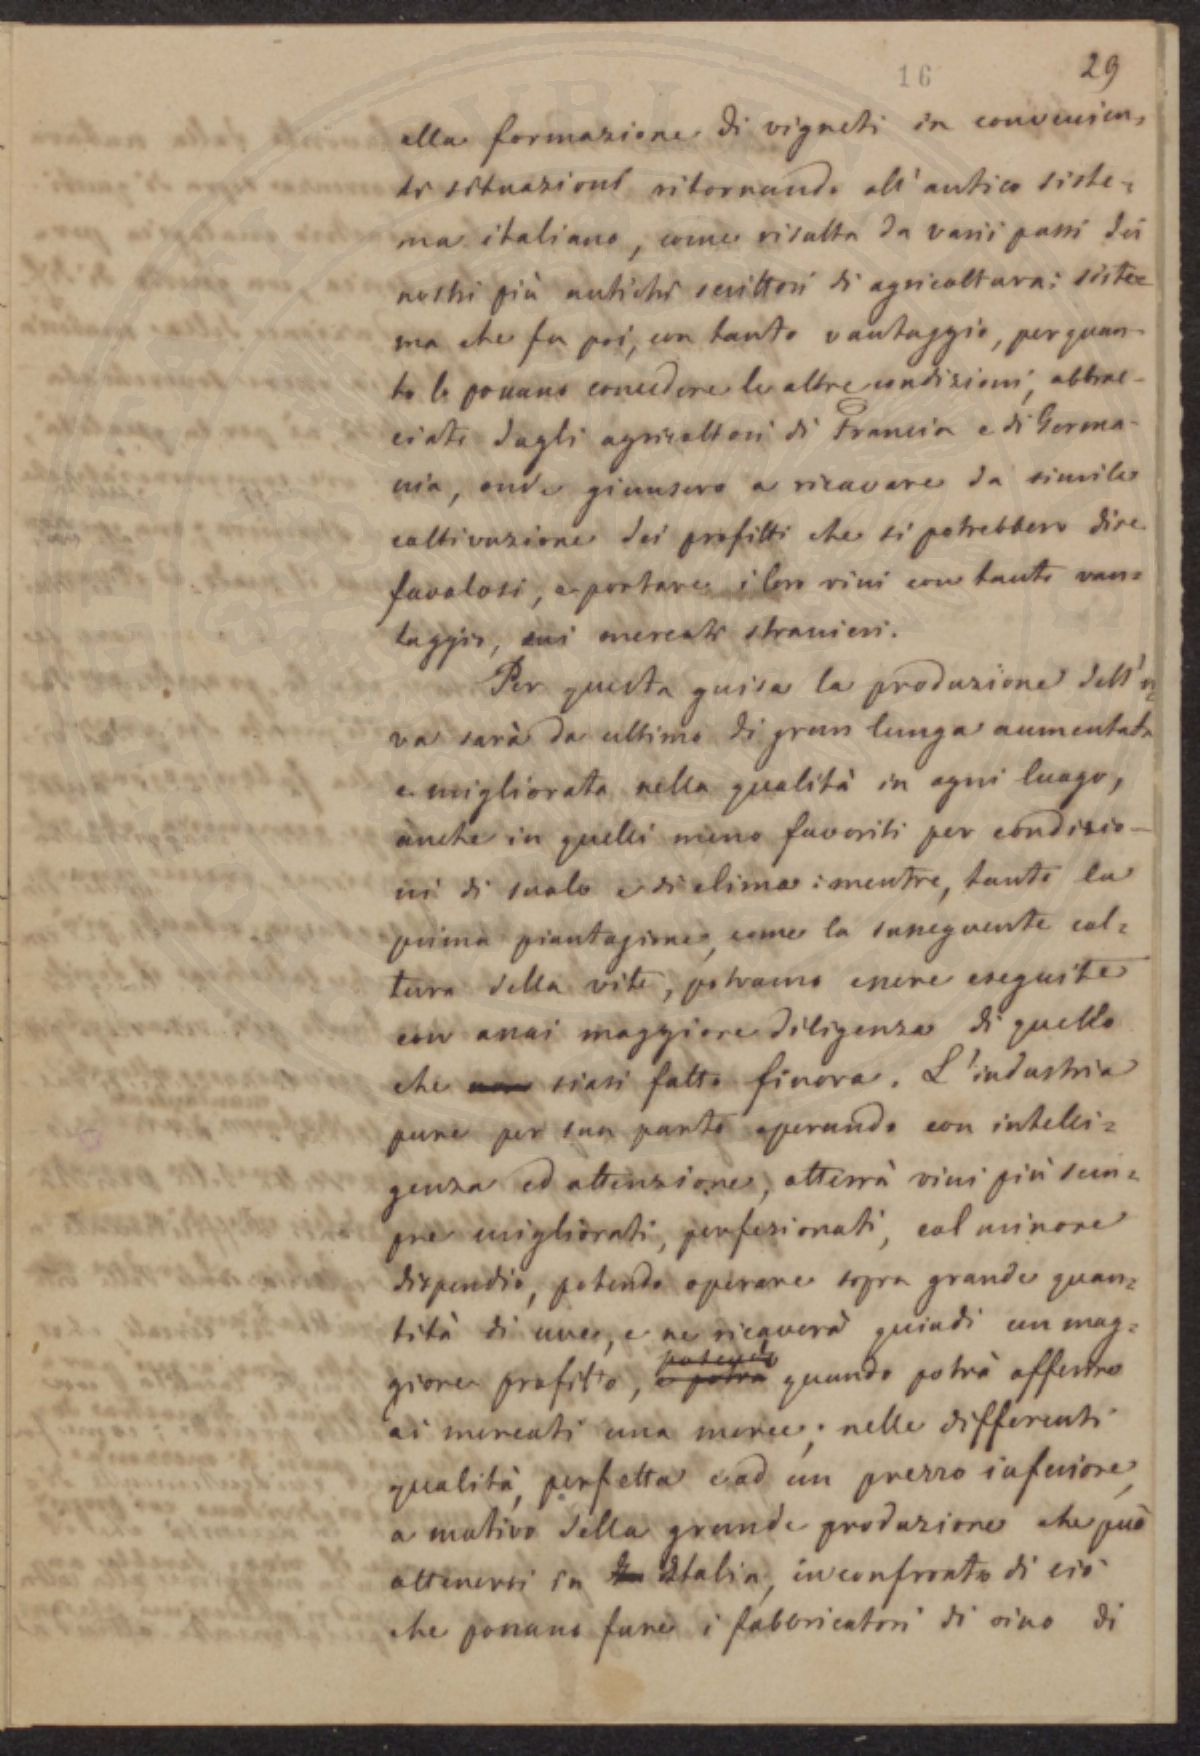 16
29
alla formazione di vigneti in convenien-
ti situazioni ritornando all'antico siste=
ma italiano, come risulta da varii passi dei
nostri più antichi scrittori di agricoltura: siste=
ma che fu poi, con tanto vantaggio, per quan-
to lo possano concedere le altre condizioni, abbrac-
ciato dagli agricoltori di Francia e di Germa-
nia, onde giunsero a ricavare da simile
coltivazione dei profitti che si potrebbero dire
favolosi, e portare i loro vini con tanto van=
taggio, sui mercati stranieri.
Per questa guisa la produzione dell'u=
va sarà da ultimo di gran lunga aumentata
e migliorata nella qualità in ogni luogo,
anche in quelli meno favoriti per condizio-
ni di suolo e di clima: mentre, tanto la
prima piantagione, come la susseguente col=
tura della vite, potranno essere eseguite
con assai maggiore diligenza di quello
che non siasi fatto finora. L'industria
pure per sua parte operando con intelli=
genza ed attenzione, otterrà vini più sem=
pre migliorati, perfezionati, col minore
dispendio, potendo operare sopra grande quan=
tità di uve, e ne ricaverà quindi un mag=
potendo
giore profitto, e potrà quando potrà offerire
ai mercati una merce, nelle differenti
qualità, perfetta e ad un prezzo inferiore,
a motivo della grande produzione che può
ottenersi in Italia, in confronto di ciò
che possano fare i fabbricatori di vino di